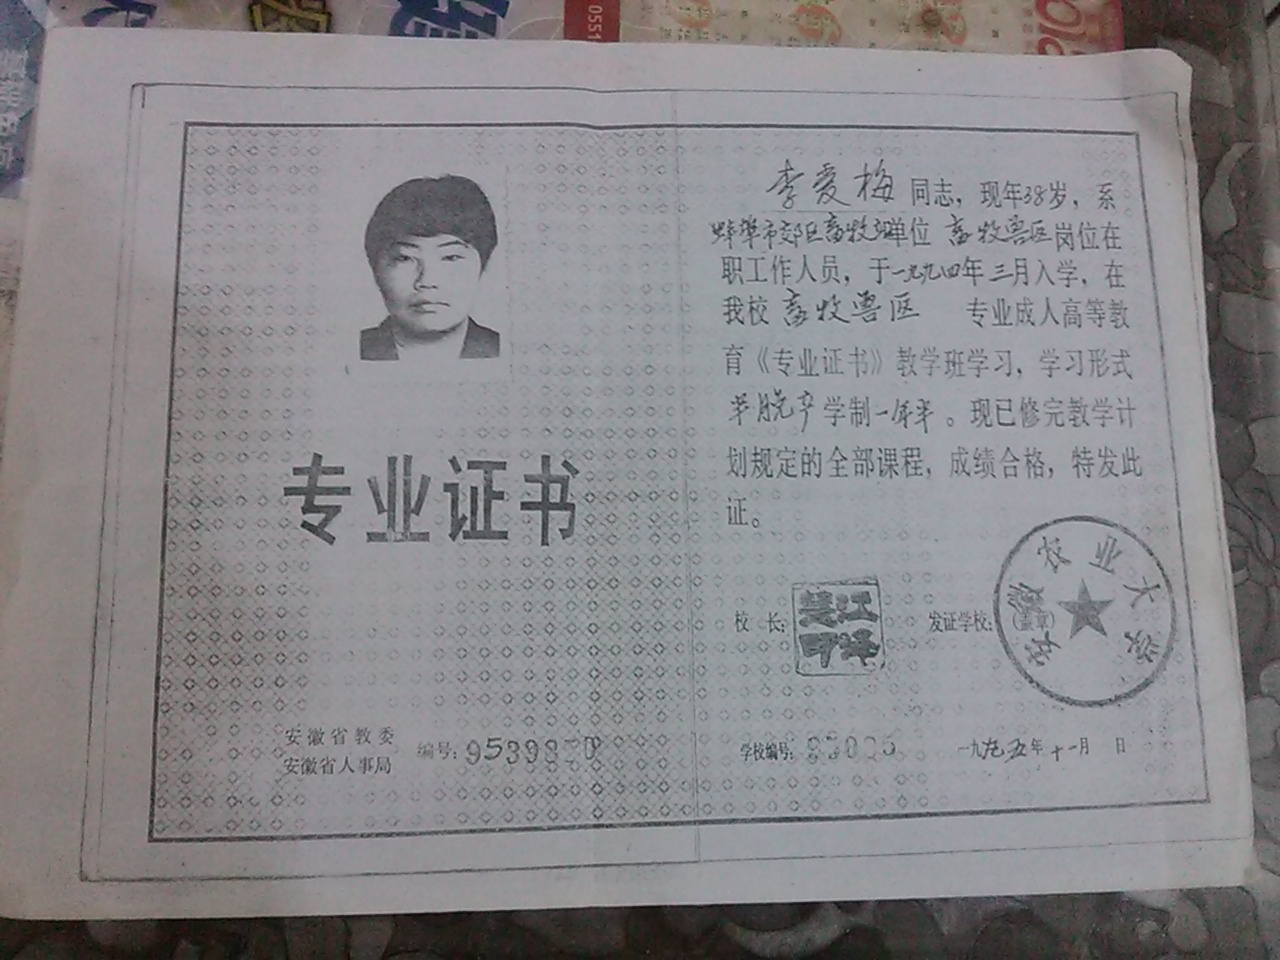 李爱梅 同志，现年38岁，系
蚌埠市郊区畜牧站单位 畜牧兽医岗位在
职工作人员，于一九九四年三月入学，在
我校 畜牧兽医 专业成人高等教
育《专业证书》教学班学习，学习形式
半脱产学制一年半。现已修完教学计
划规定的全部课程，成绩合格，特发此
证。
专业证书
校 长：
发证学校：
(盖章)
安徽农业大学
安徽省教委
安徽省人事局
编号：
学校编号：
一九九五年十一月 日
0551